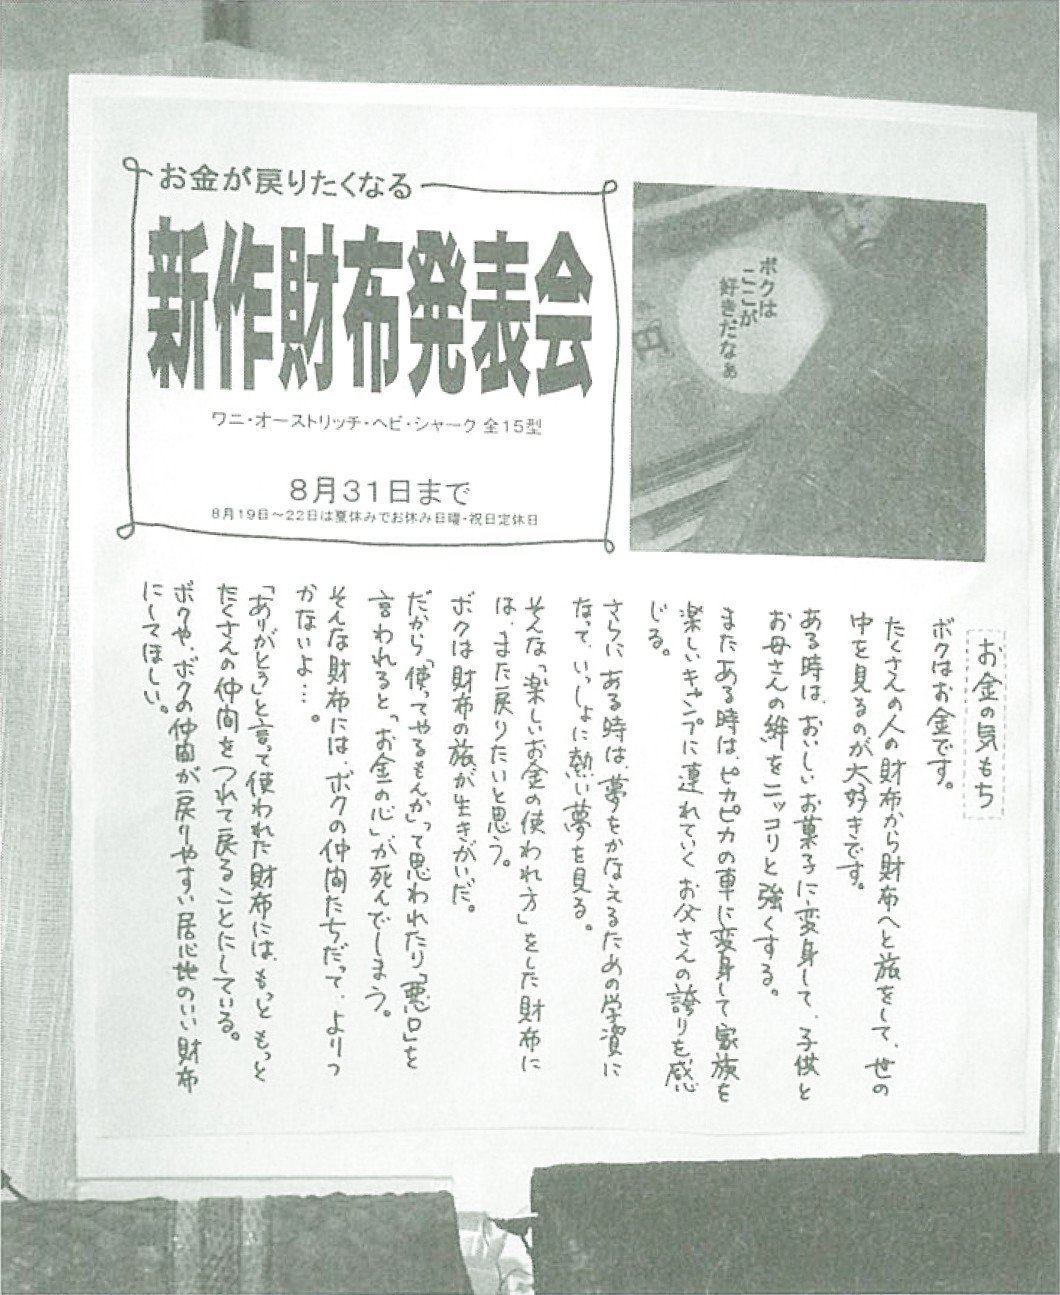 お金が戻りたくなる
新作財布発表会
ワニ・オーストリッチ・ヘビ・シャーク 全15型
8月31日まで
8月19日~22日は夏休みでお休み日曜・祝日定休日
ボクは
ここが
好きだなぁ
円
お金の気もち
ボクはお金です。
たくさんの人の財布から財布へと旅をして、世の
中を見るのが大好きです。
ある時は、おいしいお菓子に変身して、子供と
お母さんの絆をニッコリと強くする。
またある時は、ピカピカの車に変身して家族を
楽しいキャンプに連れていく お父さんの誇りを感
じる。
さらに ある時は 夢をかなえるための学資に
なって、いっしょに熱い夢を見る。
そんな「楽しいお金の使われ方」をした財布に
は、また戻りたいと思う。
ボクは財布の旅が生きがいだ。
だから「使ってやるもんか」って思われたり「悪口」を
言われると「お金の心」が死んでしまう。
そんな財布には、ボクの仲間たちだって、よりつ
かないよ…。
「ありがとう」と言って使われた財布には、もっと もっと
たくさんの仲間をつれて戻ることにしている。
ボクや、ボクの仲間が戻りやすい居心地のいい財布
にしてほしい。